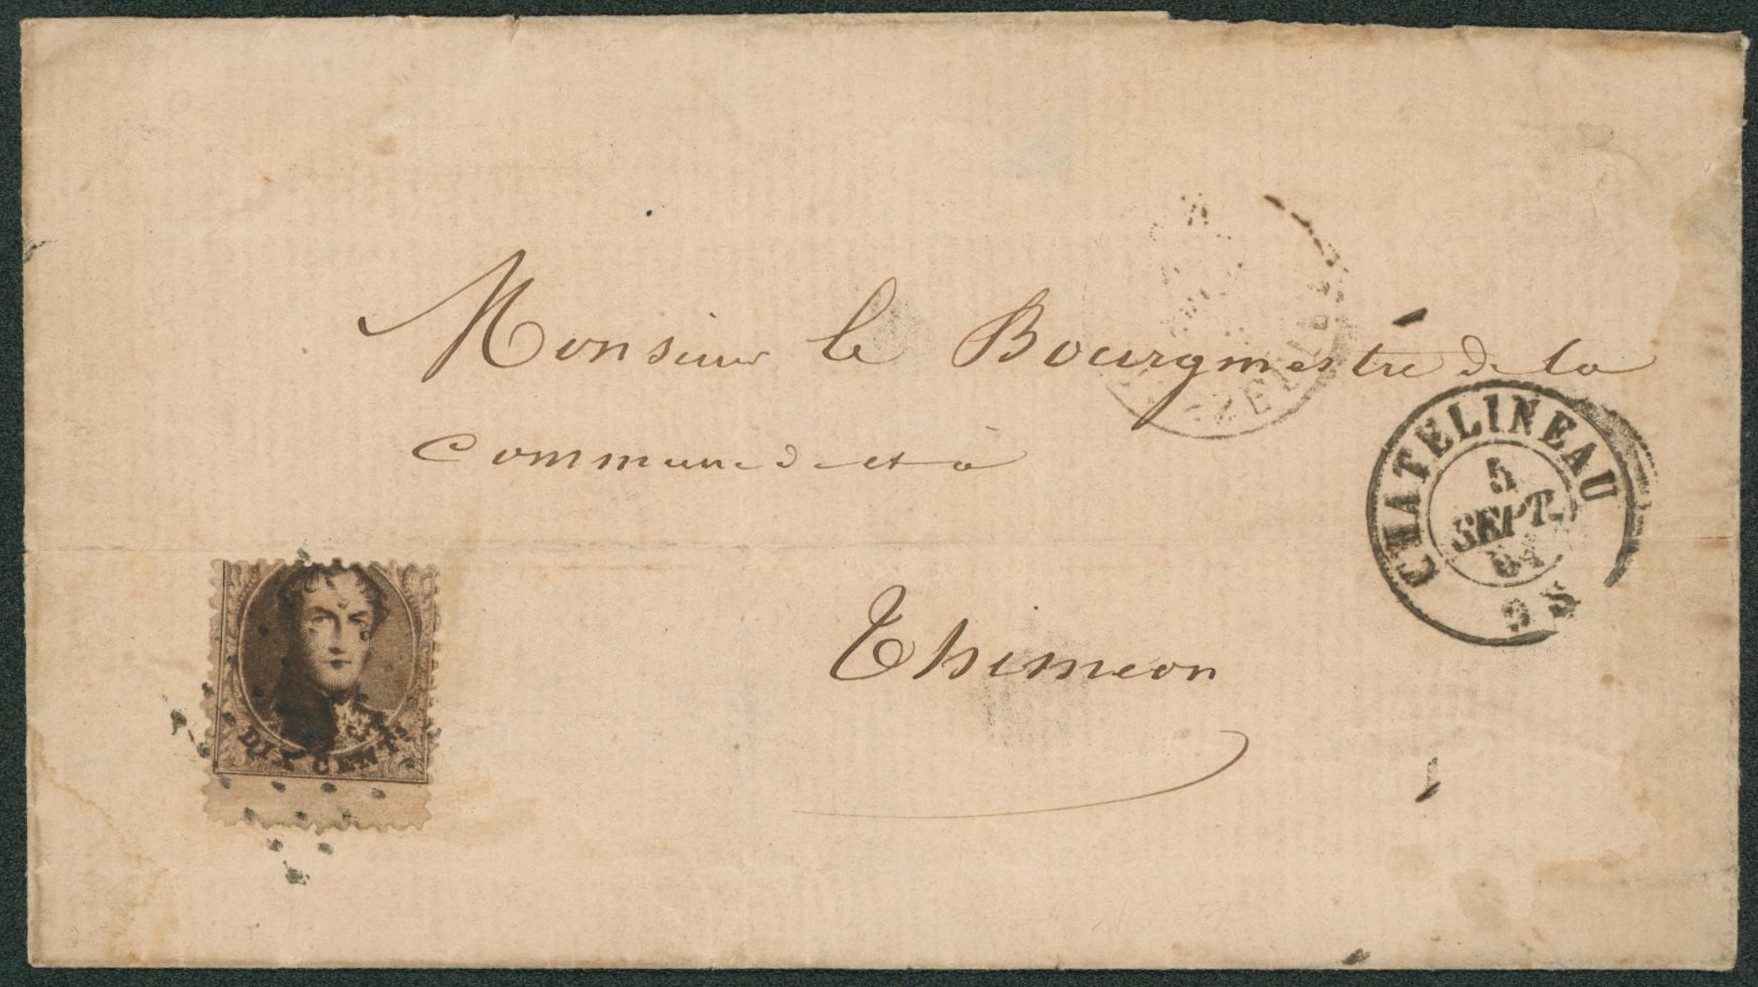 Monsieur le Bourgmestre de la
Commune de et à
Thiméon
CHATELINEAU
5
SEPT.
DIX CENTS